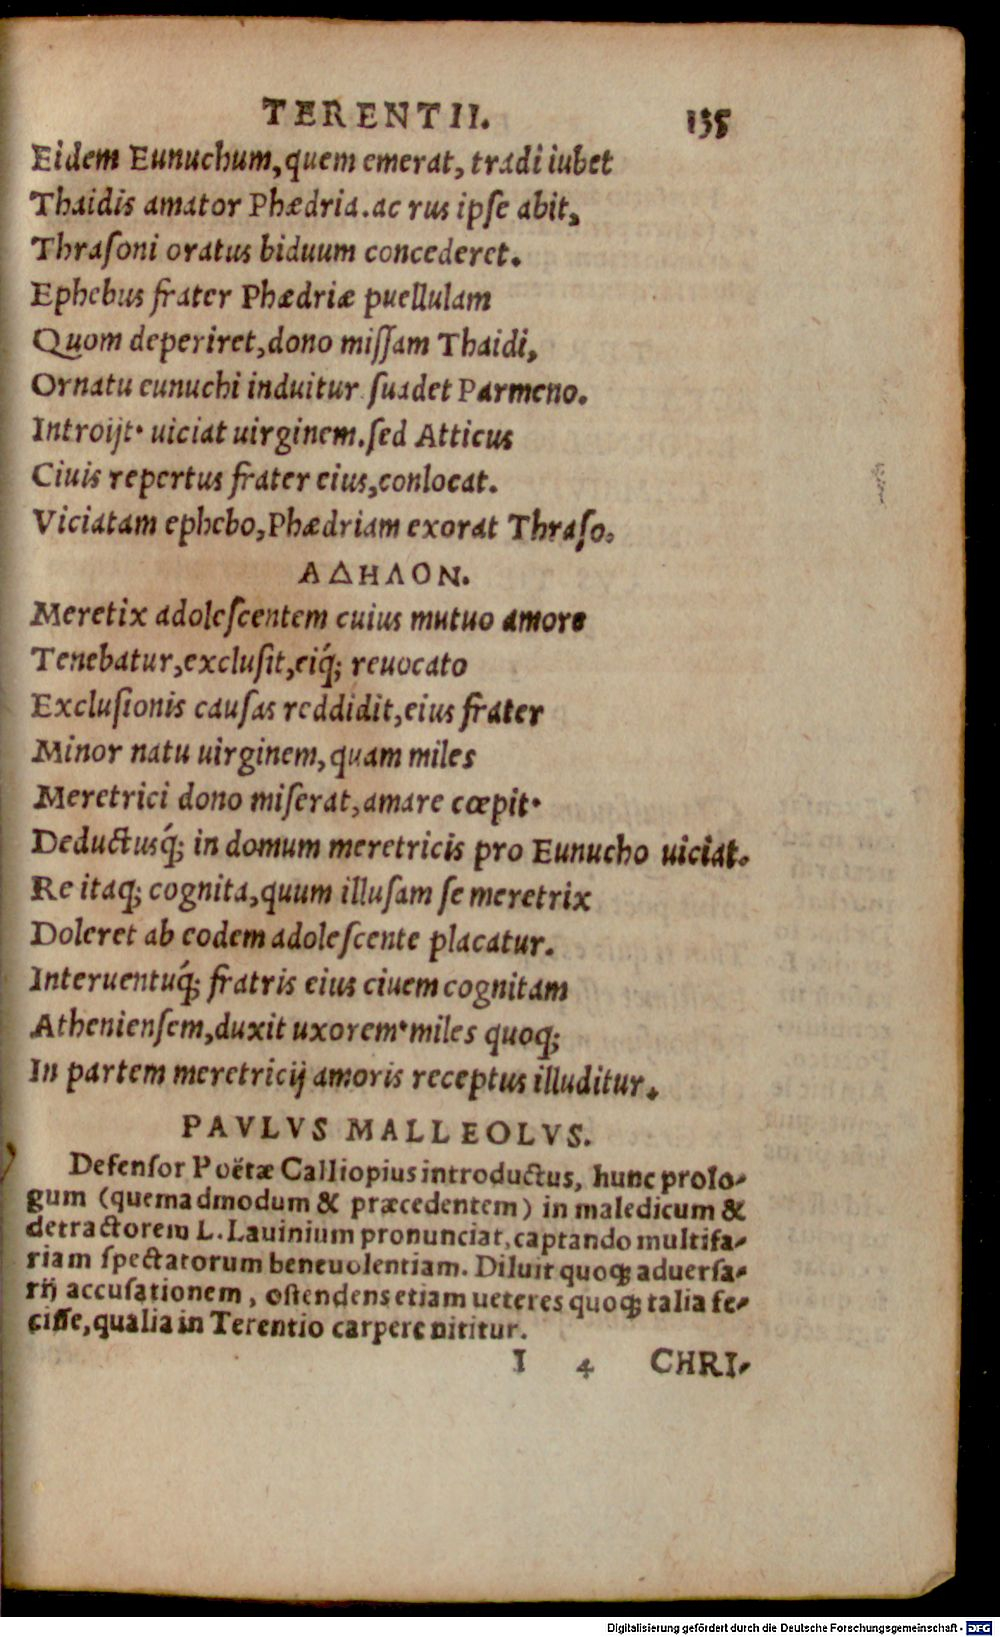 TERENTII. 135
Eidem Eunuchum, quem emerat, tradi iubet
Thaidis amator Phædria. ac rus ipſe abit,
Thraſoni oratus biduum concederet.
Ephebus frater Phædriæ puellulam
Quom deperiret, dono miſſam Thaidi,
Ornatu eunuchi induitur ſuadet Parmeno.
Introijt· uiciat uirginem. ſed Atticus
Ciuis repertus frater eius, conlocat.
Viciatam ephebo, Phædriam exorat Thraſo.
ΑΔΗΛΟΝ.
Meretix adoleſcentem cuius mutuo amore
Tenebatur, excluſit, eiq́; reuocato
Excluſionis cauſas reddidit, eius frater
Minor natu uirginem, quam miles
Meretrici dono miſerat, amare cœpit·
Deductusq́; in domum meretricis pro Eunucho uiciat.
Re itaq; cognita, quum illuſam ſe meretrix
Doleret ab eodem adoleſcente placatur.
Interuentuq́; fratris eius ciuem cognitam
Athenienſem, duxit uxorem· miles quoq;
In partem meretricij amoris receptus illuditur.
PAVLVS MALLEOLVS.
Defenſor Poëtæ Calliopius introductus, hunc prolo-
gum (quemadmodum & præcedentem) in maledicum &
detractorem L. Lauinium pronunciat, captando multifa-
riam ſpectatorum beneuolentiam. Diluit quoq; aduerſa-
rij accuſationem, oſtendens etiam ueteres quoq; talia fe-
ciſſe, qualia in Terentio carpere nititur.
I 4 CHRI-
Digitalisierung gefördert durch die Deutsche Forschungsgemeinschaft - DFG